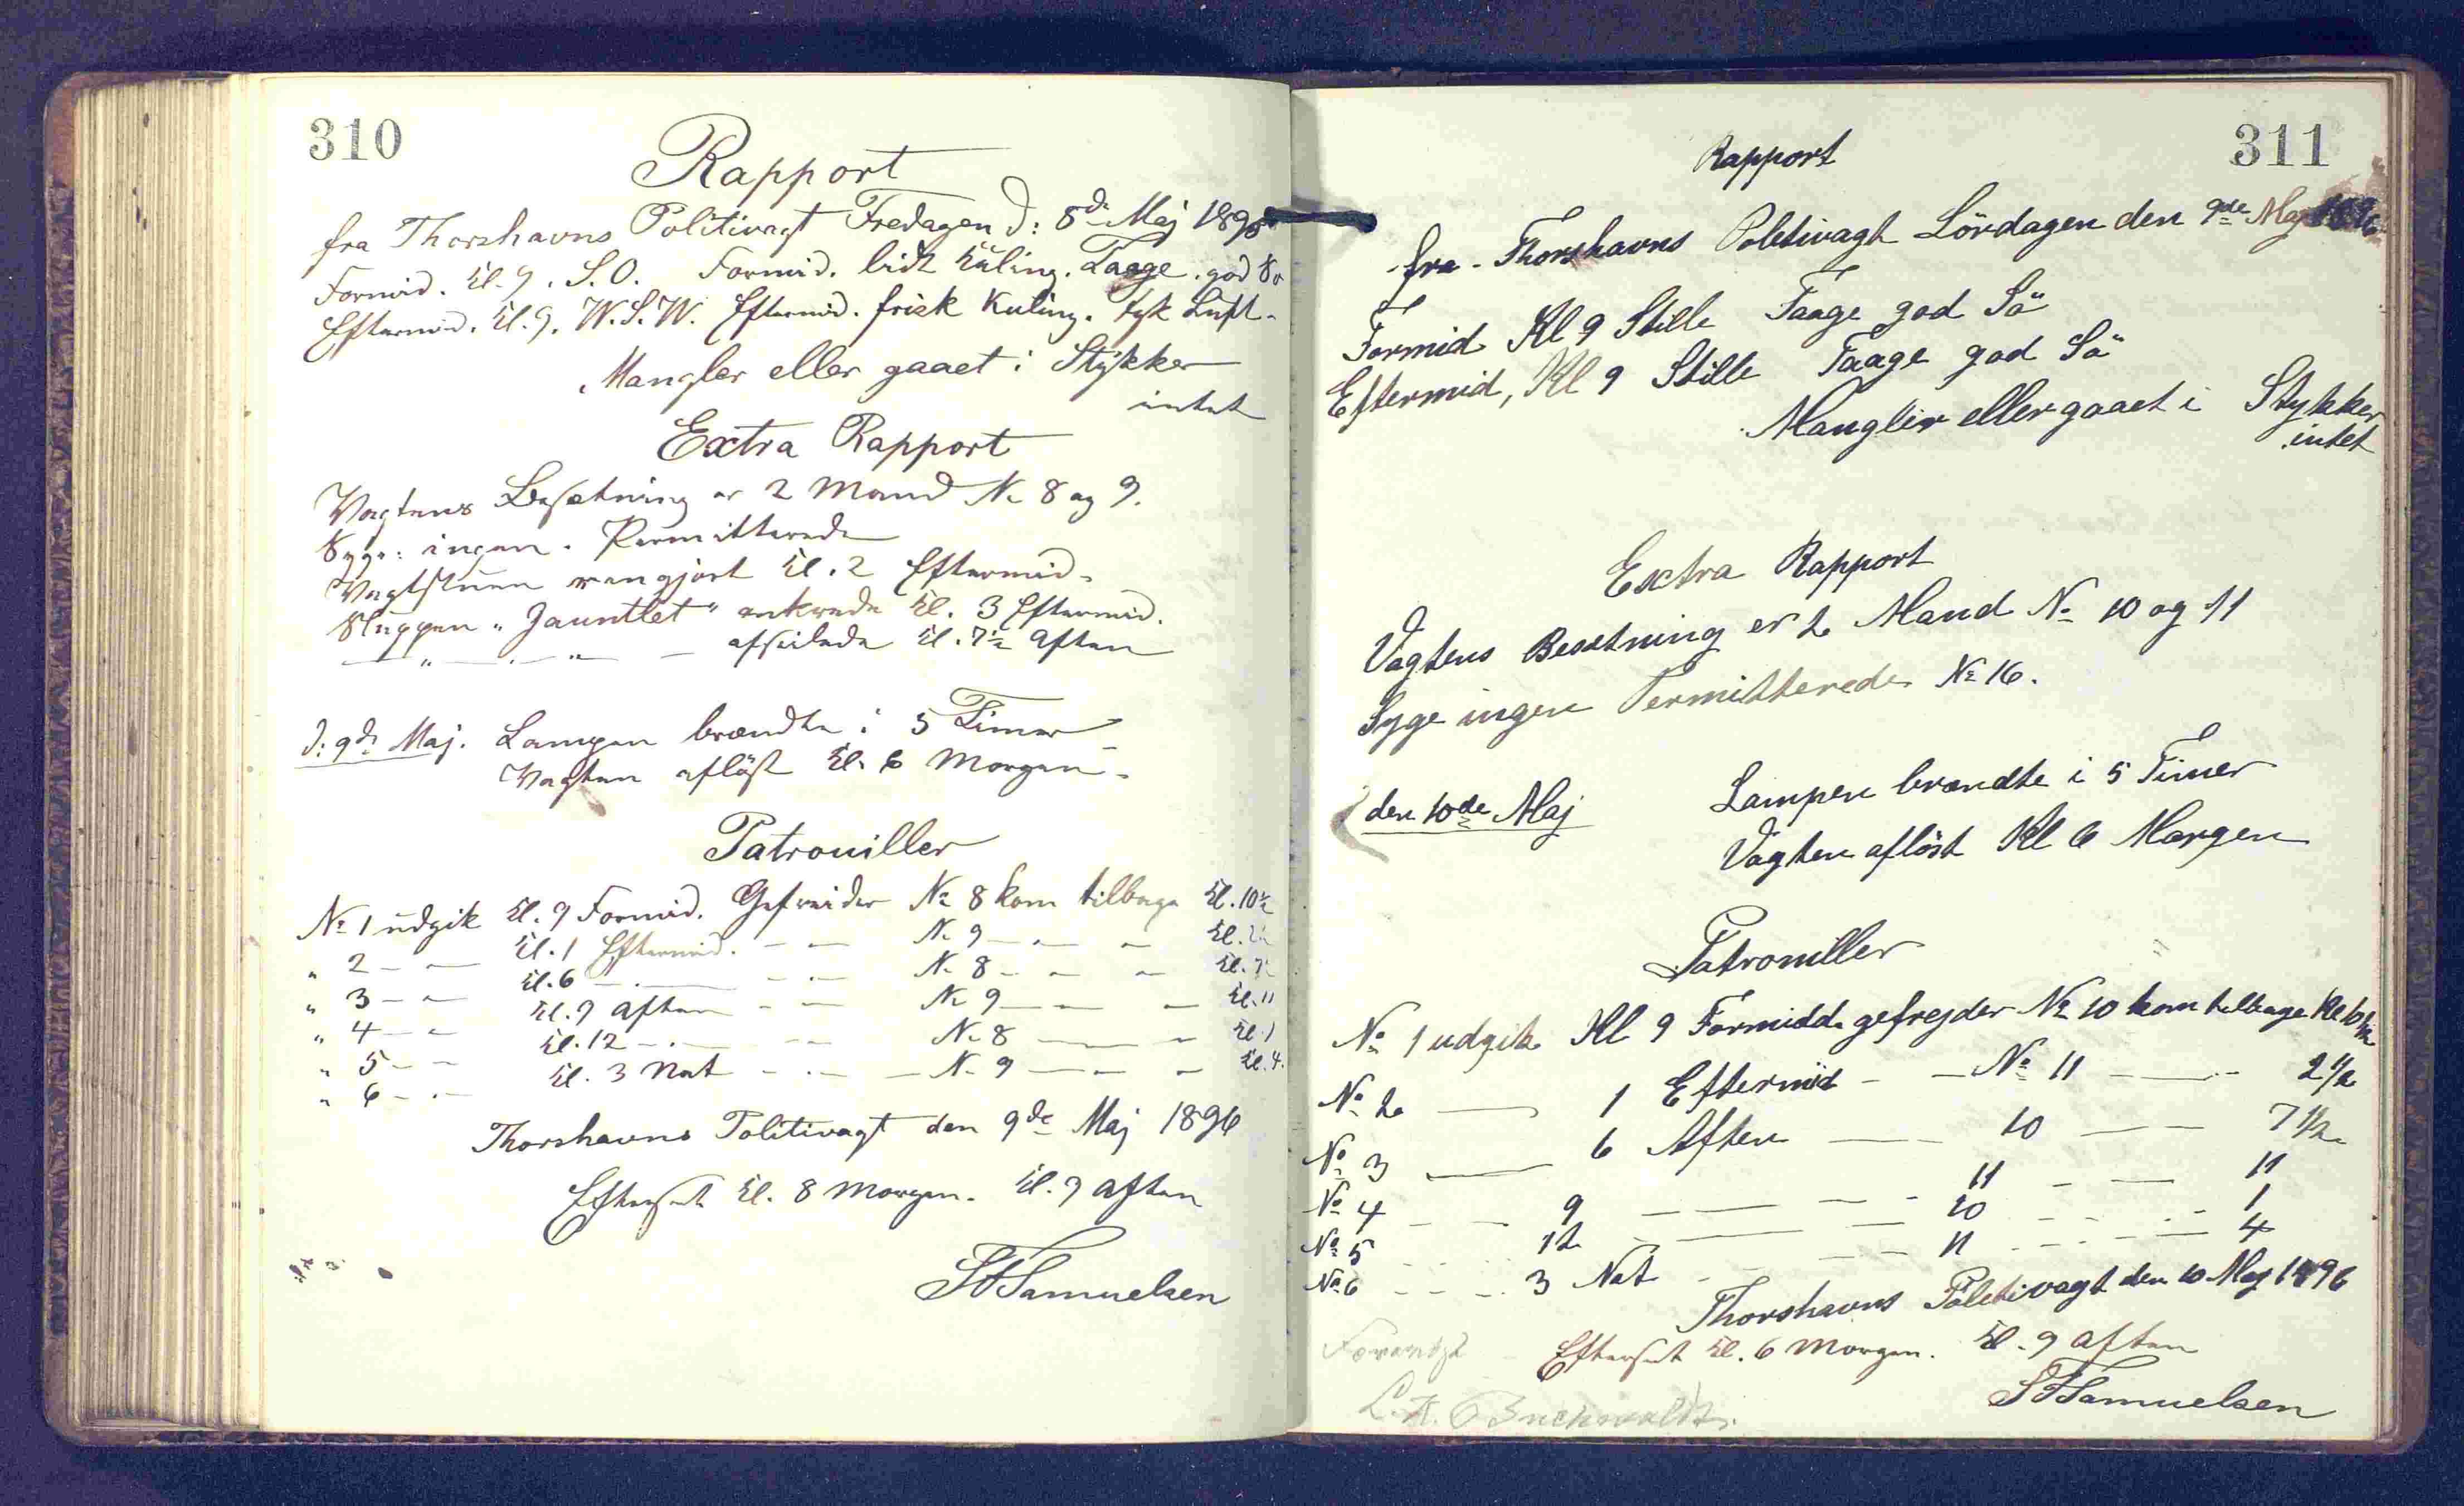 310
Rapport
fra Thorshavns Politivagt Fredagen d: 8de Maj 1896
Formid. Kl. 9. S.O. Formid. lidt Kuling. Taage. god Sö
Eftermid. Kl. 9. W.S.W. Eftermid. frisk Kuling. tyk Luft.
Mangler eller gaaet i Stykker
intet
Extra Rapport
Vagtens Besætning er 2 Mand No 8 og 9.
Syge: ingen. Permitterede
Vagtstuen rengjort Kl. 2 Eftermid.
Sluppen "Gauntlet" ankrede Kl. 3 Eftermid.
— " — . — " — — afseilede Kl. 7½ Aften
d: 9de Maj. Lampen brændte i 5 Timer
Vagten aflöst Kl. 6 Morgen.
Patrouiller
No 1 udgik Kl. 9 Formid. Gefreider No 8 kom tilbage Kl. 10½
" 2 — — Kl. 1 Eftermid. — — No 9 — — — Kl. 2½
" 3 — — Kl. 6 — — — — No 8 — — — Kl. 7½
" 4 — — Kl. 9 Aften — — No 9 — — — Kl. 11
" 5 — — Kl. 12 — — — No 8 — — Kl. 1
" 6 — — Kl. 3 Nat — — — No 9 — — — Kl. 4.
Thorshavns Politivagt den 9de Maj 1896
Efterset Kl. 8 Morgen. Kl. 9 Aften
SFSamuelsen
311
Rapport
fra Thorshavns Politivagt Lördagen den 9de Maj 1896
Formid Kl 9 Stille Taage god Sö
Eftermid, Kl 9 Stille Taage god Sö
Mangler eller gaaet i Stykker
intet
Extra Rapport
Vagtens Besætning er 2 Mand No 10 og 11
Syge ingen Permitterede No 16.
den 10de Maj Lampen brændte i 5 Timer
Vagten aflöst Kl 6 Morgen
Patrouiller
No 1 udgik Kl 9 Formidd gefrejder No 10 kom tilbage Kl 10½
No 2 — 1 Eftermid — — No 11 — — 2 1/2
No 3 — 6 Aften — — 10 — — 7 1/2
No 4 — — 9 — — — 11 — — 11
No 5 12 — — — 10 — — 1
No 6 — — 3 Nat — — — 11 — — 4
Thorshavns Politivagt den 10 Maj 1896
Forevist Efterset Kl. 6 Morgen. Kl. 9 Aften
SFSamuelsen
Buchwaldt.